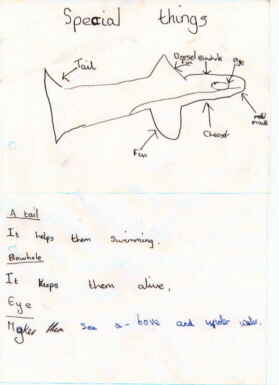 Special things
Tail
Dorsel
Blowhole
eye
Fin
Chest
A tail
It helps them swimming.
Blowhole
It Keeps them alive.
Eye
Makes them see a-bove and under water.